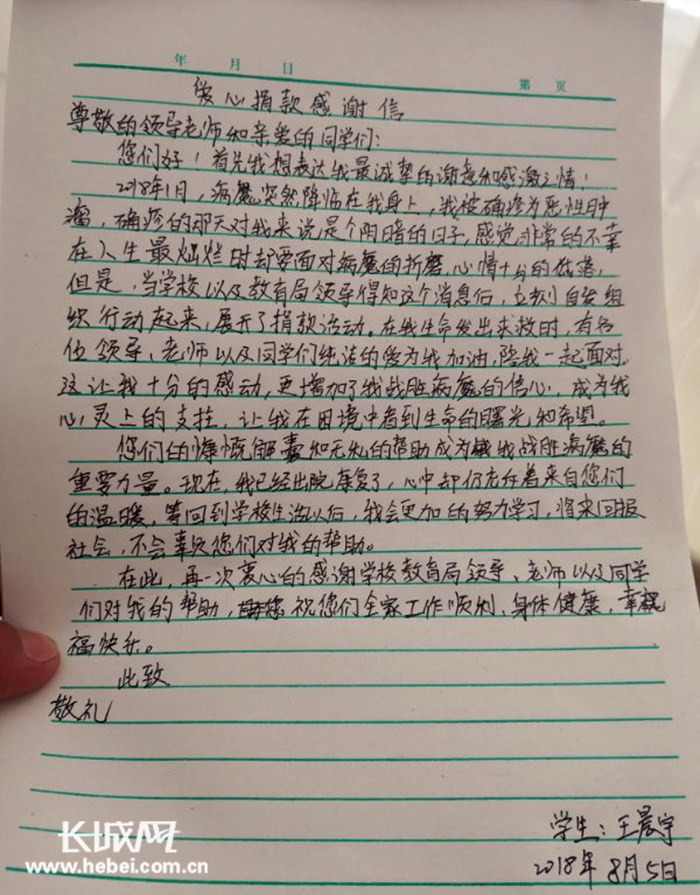 年 月 日
第 页
爱心捐款感谢信
尊敬的领导老师和亲爱的同学们:
您们好!首先我想表达我最诚挚的谢意和感激之情!
2018年1月,病魔突然降临在我身上,我被确诊为恶性肿
瘤,确诊的那天对我来说是个阴暗的日子,感觉非常的不幸
在人生最灿烂时却要面对病魔的折磨,心情十分的低落,
但是,当学校以及教育局领导得知这个消息后,立刻自发组
织行动起来,展开了捐款活动。在我生命发出求救时,有各
位领导、老师以及同学们纯洁的爱为我加油,陪我一起面对,
这让我十分的感动,更增加了我战胜病魔的信心,成为我
心灵上的支柱,让我在困境中看到生命的曙光和希望。
您们的慷慨解囊和无私的帮助成为我战胜病魔的
重要力量。现在,我已经出院康复了,心中却仍充存着来自您们
的温暖,等回到学校生活以后,我会更加的努力学习,将来回报
社会,不会辜负您们对我的帮助。
在此,再一次衷心的感谢学校教育局领导、老师以及同学
们对我的帮助,祝您们全家工作顺利、身体健康,幸
福快乐。
此致
敬礼
学生:王晨宇
2018年8月5日
长城网
www.hebei.com.cn